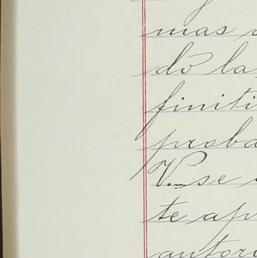 mas
do la
finiti
proba
V. se
te ap
autori